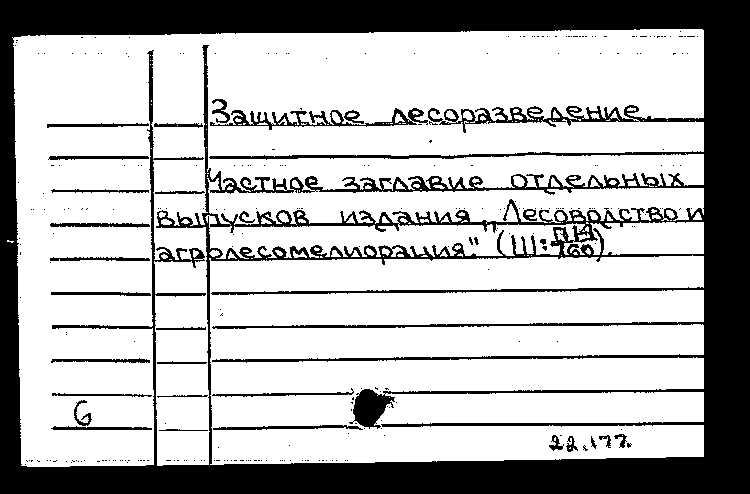 Защитное лесоразведение.
Частное заглавие отдельных
выпусков издания „Лесоводство и
агролесомелиорация." (Ш: П14/760).
6
22.177.